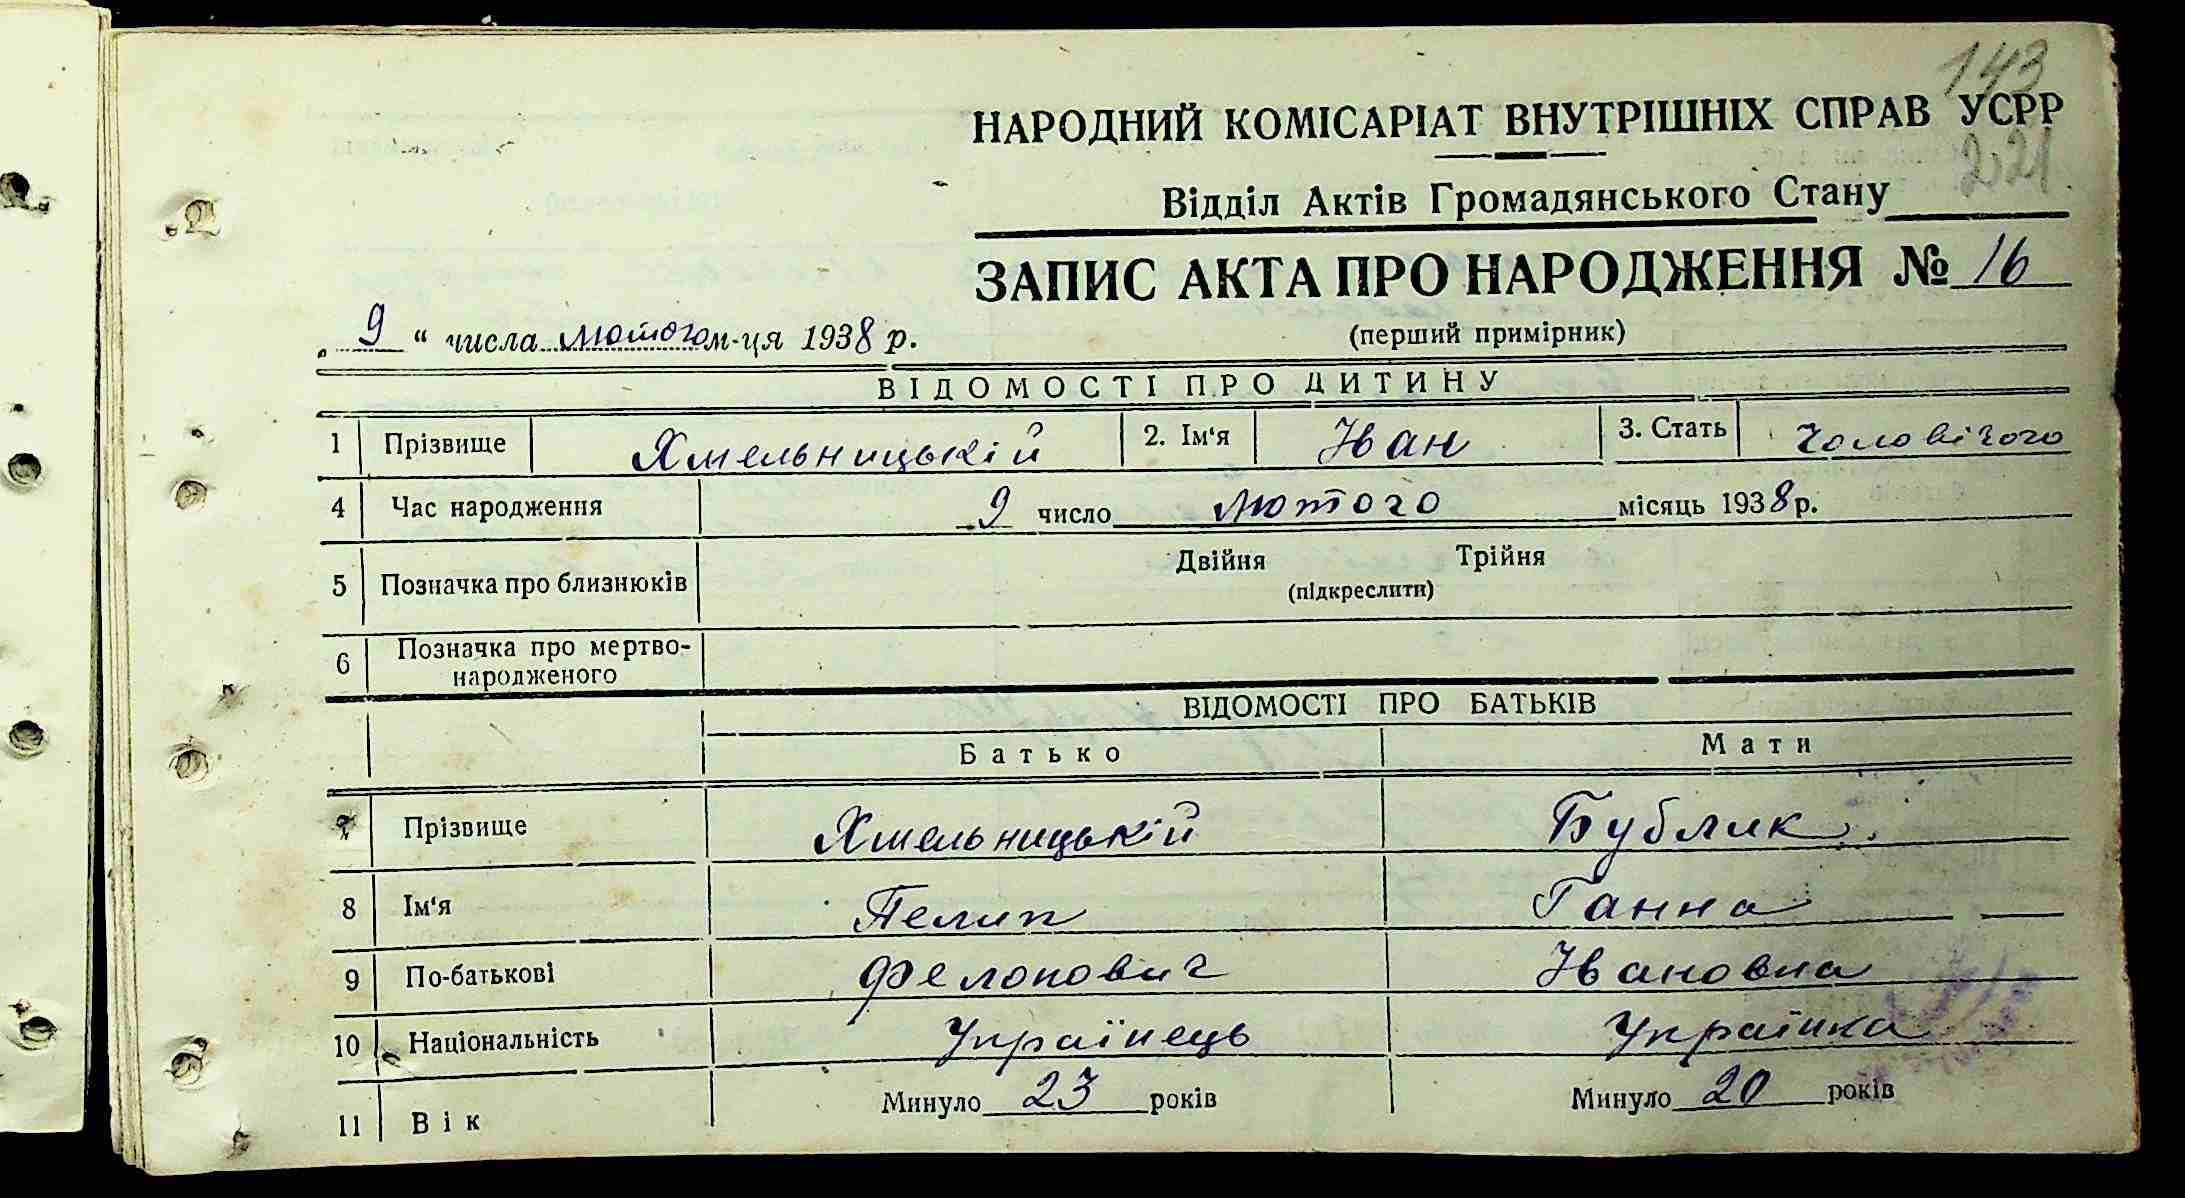 143
НАРОДНИЙ КОМІСАРІАТ ВНУТРІШНІХ СПРАВ УСРР
221
Відділ Актів Громадянського Стану
ЗАПИС АКТА ПРО НАРОДЖЕННЯ № 16
„ 9 “ числа лютого м-ця 1938 р.
(перший примірник)
ВІДОМОСТІ ПРО ДИТИНУ
1 Прізвище Хмельницькій 2. Ім‘я Іван 3. Стать Чоловічого
4 Час народження 9 число лютого місяць 1938 р.
5 Позначка про близнюків Двійня Трійня
(підкреслити)
6 Позначка про мертво-
народженого
ВІДОМОСТІ ПРО БАТЬКІВ
Батько Мати
7 Прізвище Хмельницькій Бублик
8 Ім‘я Пелип Ганна
9 По-батькові Фелонович Івановна
10 Національність Українець Українка
11 Вік Минуло 23 років Минуло 20 років